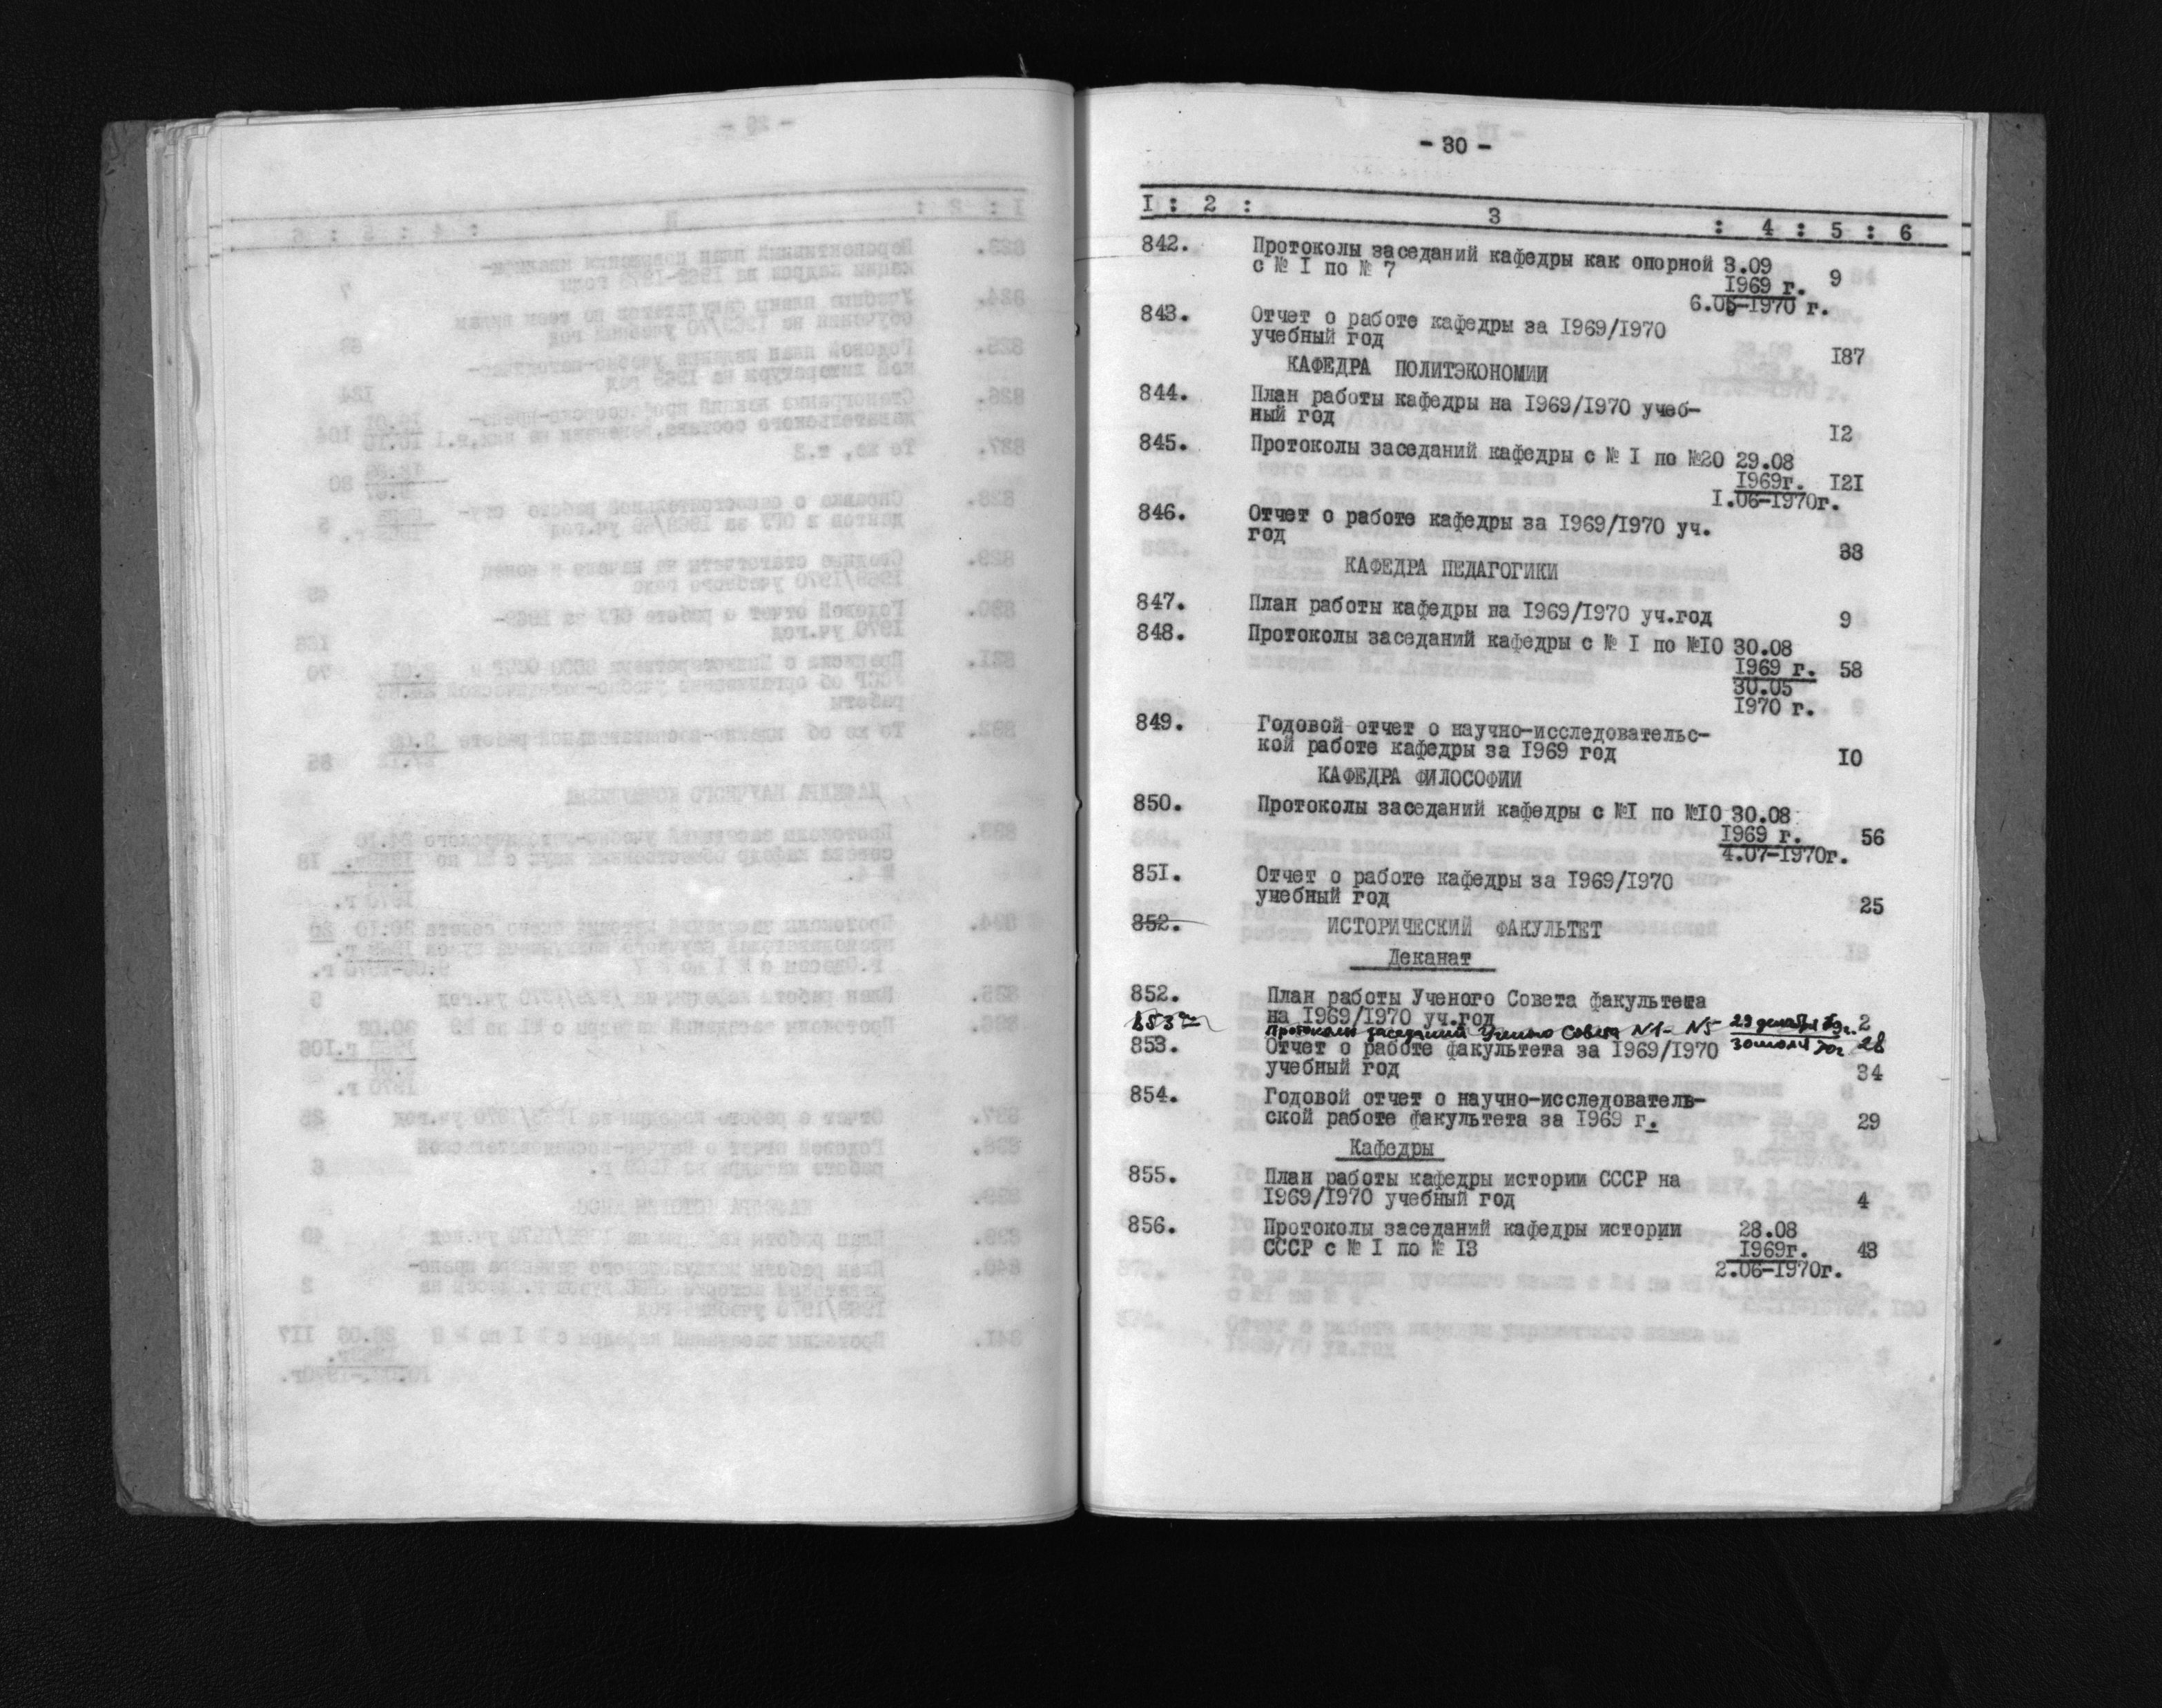 - 30 -
I : 2 : 3 : 4 : 5 : 6
842. Протоколы заседаний кафедры как опорной 3.09
с № I по № 7 I969 г. 9
6.05-I970 г.
843. Отчет о работе кафедры за I969/I970
учебный год I87
КАФЕДРА ПОЛИТЭКОНОМИИ
844. План работы кафедры на I969/I970 учеб-
ный год I2
845. Протоколы заседаний кафедры с № I по №20 29.08
I969г. I2I
I.06-I970г.
846. Отчет о работе кафедры за I969/I970 уч.
год 33
КАФЕДРА ПЕДАГОГИКИ
847. План работы кафедры на I969/I970 уч.год 9
848. Протоколы заседаний кафедры с № I по №I0 30.08
I969 г. 58
30.05
I970 г.
849. Годовой отчет о научно-исследовательс-
кой работе кафедры за I969 год I0
КАФЕДРА ФИЛОСОФИИ
850. Протоколы заседаний кафедры с №I по №I0 30.08
I969 г. 56
4.07-I970г.
85I. Отчет о работе кафедры за I969/I970
учебный год 25
852. ИСТОРИЧЕСКИЙ ФАКУЛЬТЕТ
Деканат
852. План работы Ученого Совета факультета
на I969/I970 уч.год 2
853а Протоколы заседаний Ученого Совета N1- N5 28
853. Отчет о работе факультета за I969/I970
учебный год 34
854. Годовой отчет о научно-исследователь-
ской работе факультета за I969 г. 29
Кафедры
855. План работы кафедры истории СССР на
I969/I970 учебный год 4
856. Протоколы заседаний кафедры истории 28.08
СССР с № I по № I3 I969г. 43
2.06-I970г.